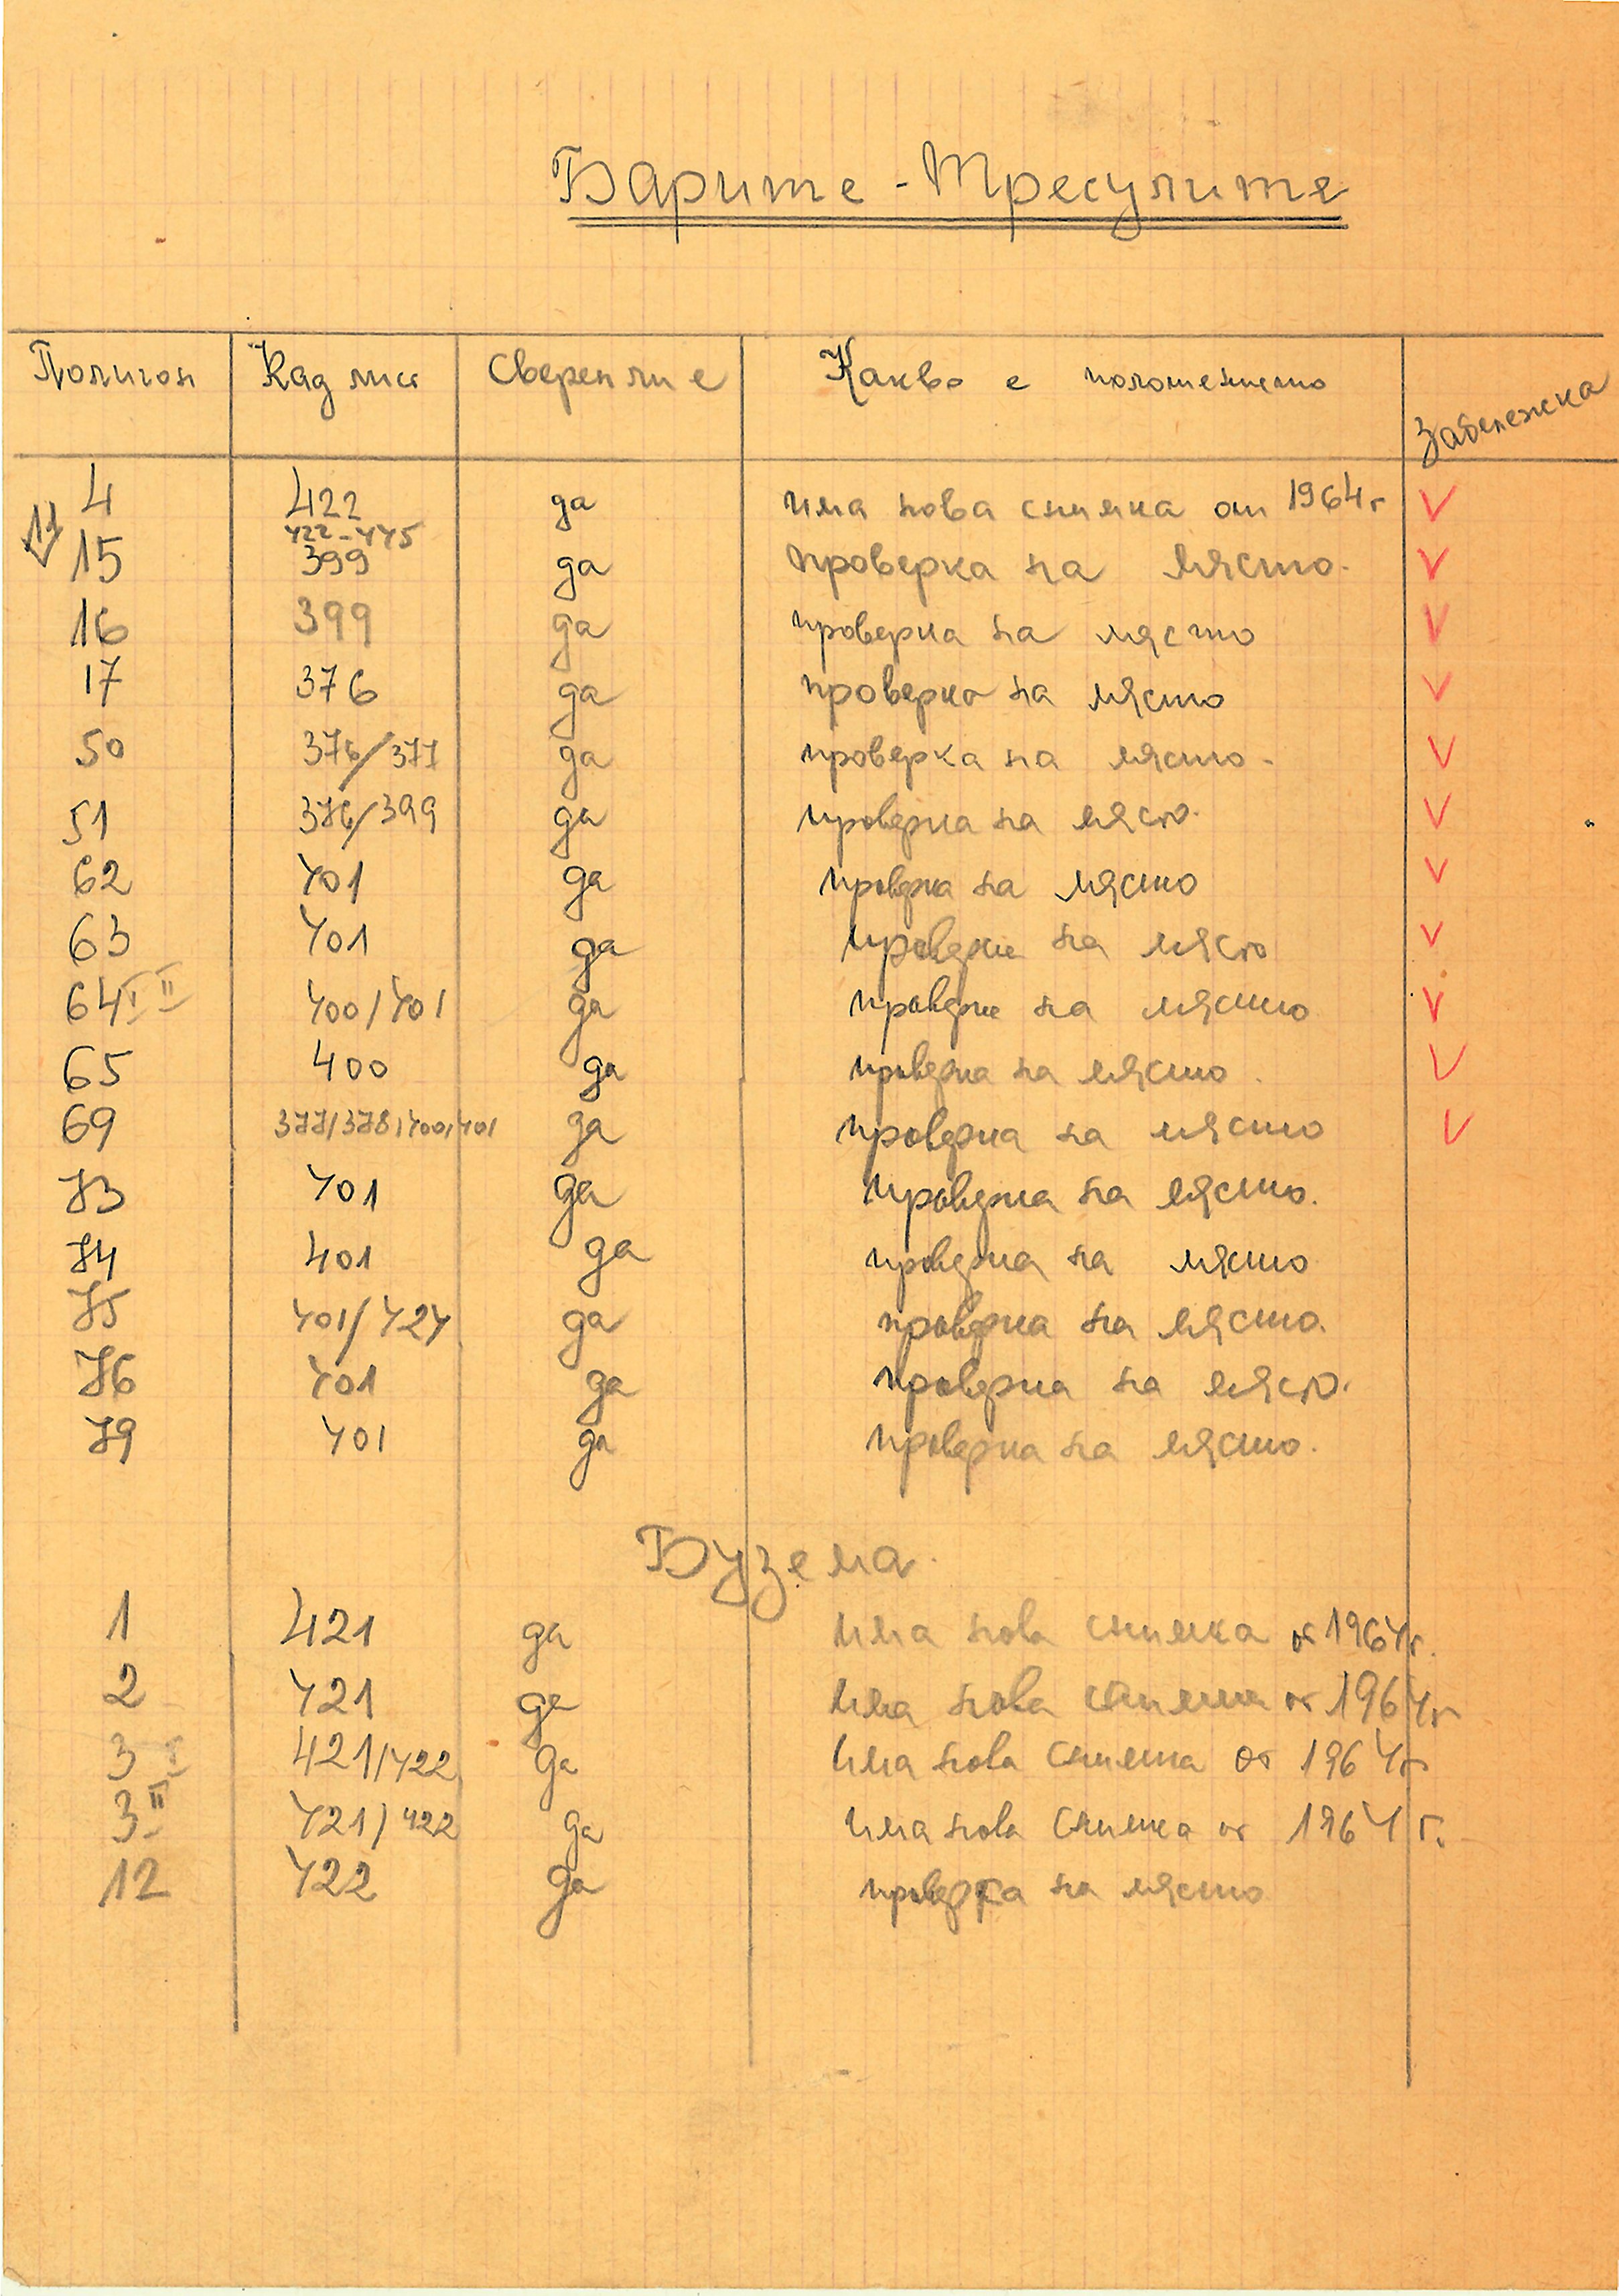 Барите - Тресулите
Полигон Кад лист Сверение Какво е положението Забележка
4 422 да има нова снимка от 1964 г V
11 422-445
15 399 да проверка на място. V
16 399 да проверка на място V
17 376 да проверка на място V
50 376/377 да проверка на място. V
51 376/399 да проверка на място. V
62 401 да проверка на място V
63 401 да проверка на място V
64 I II 400/401 да проверка на място V
65 400 да проверка на място. V
69 377/378/400/401 да проверка на място V
73 401 да проверка на място.
74 401 да проверка на място
75 401/424 да проверка на място.
76 401 да проверка на място.
79 401 да проверка на място.
Бузема.
1 421 да има нова снимка от 1964 г.
2 421 да има нова снимка от 1964 г
3 I 421/422 да има нова снимка от 1964 г
3 II 421/422 да има нова снимка от 1964 г.
12 422 да проверка на място